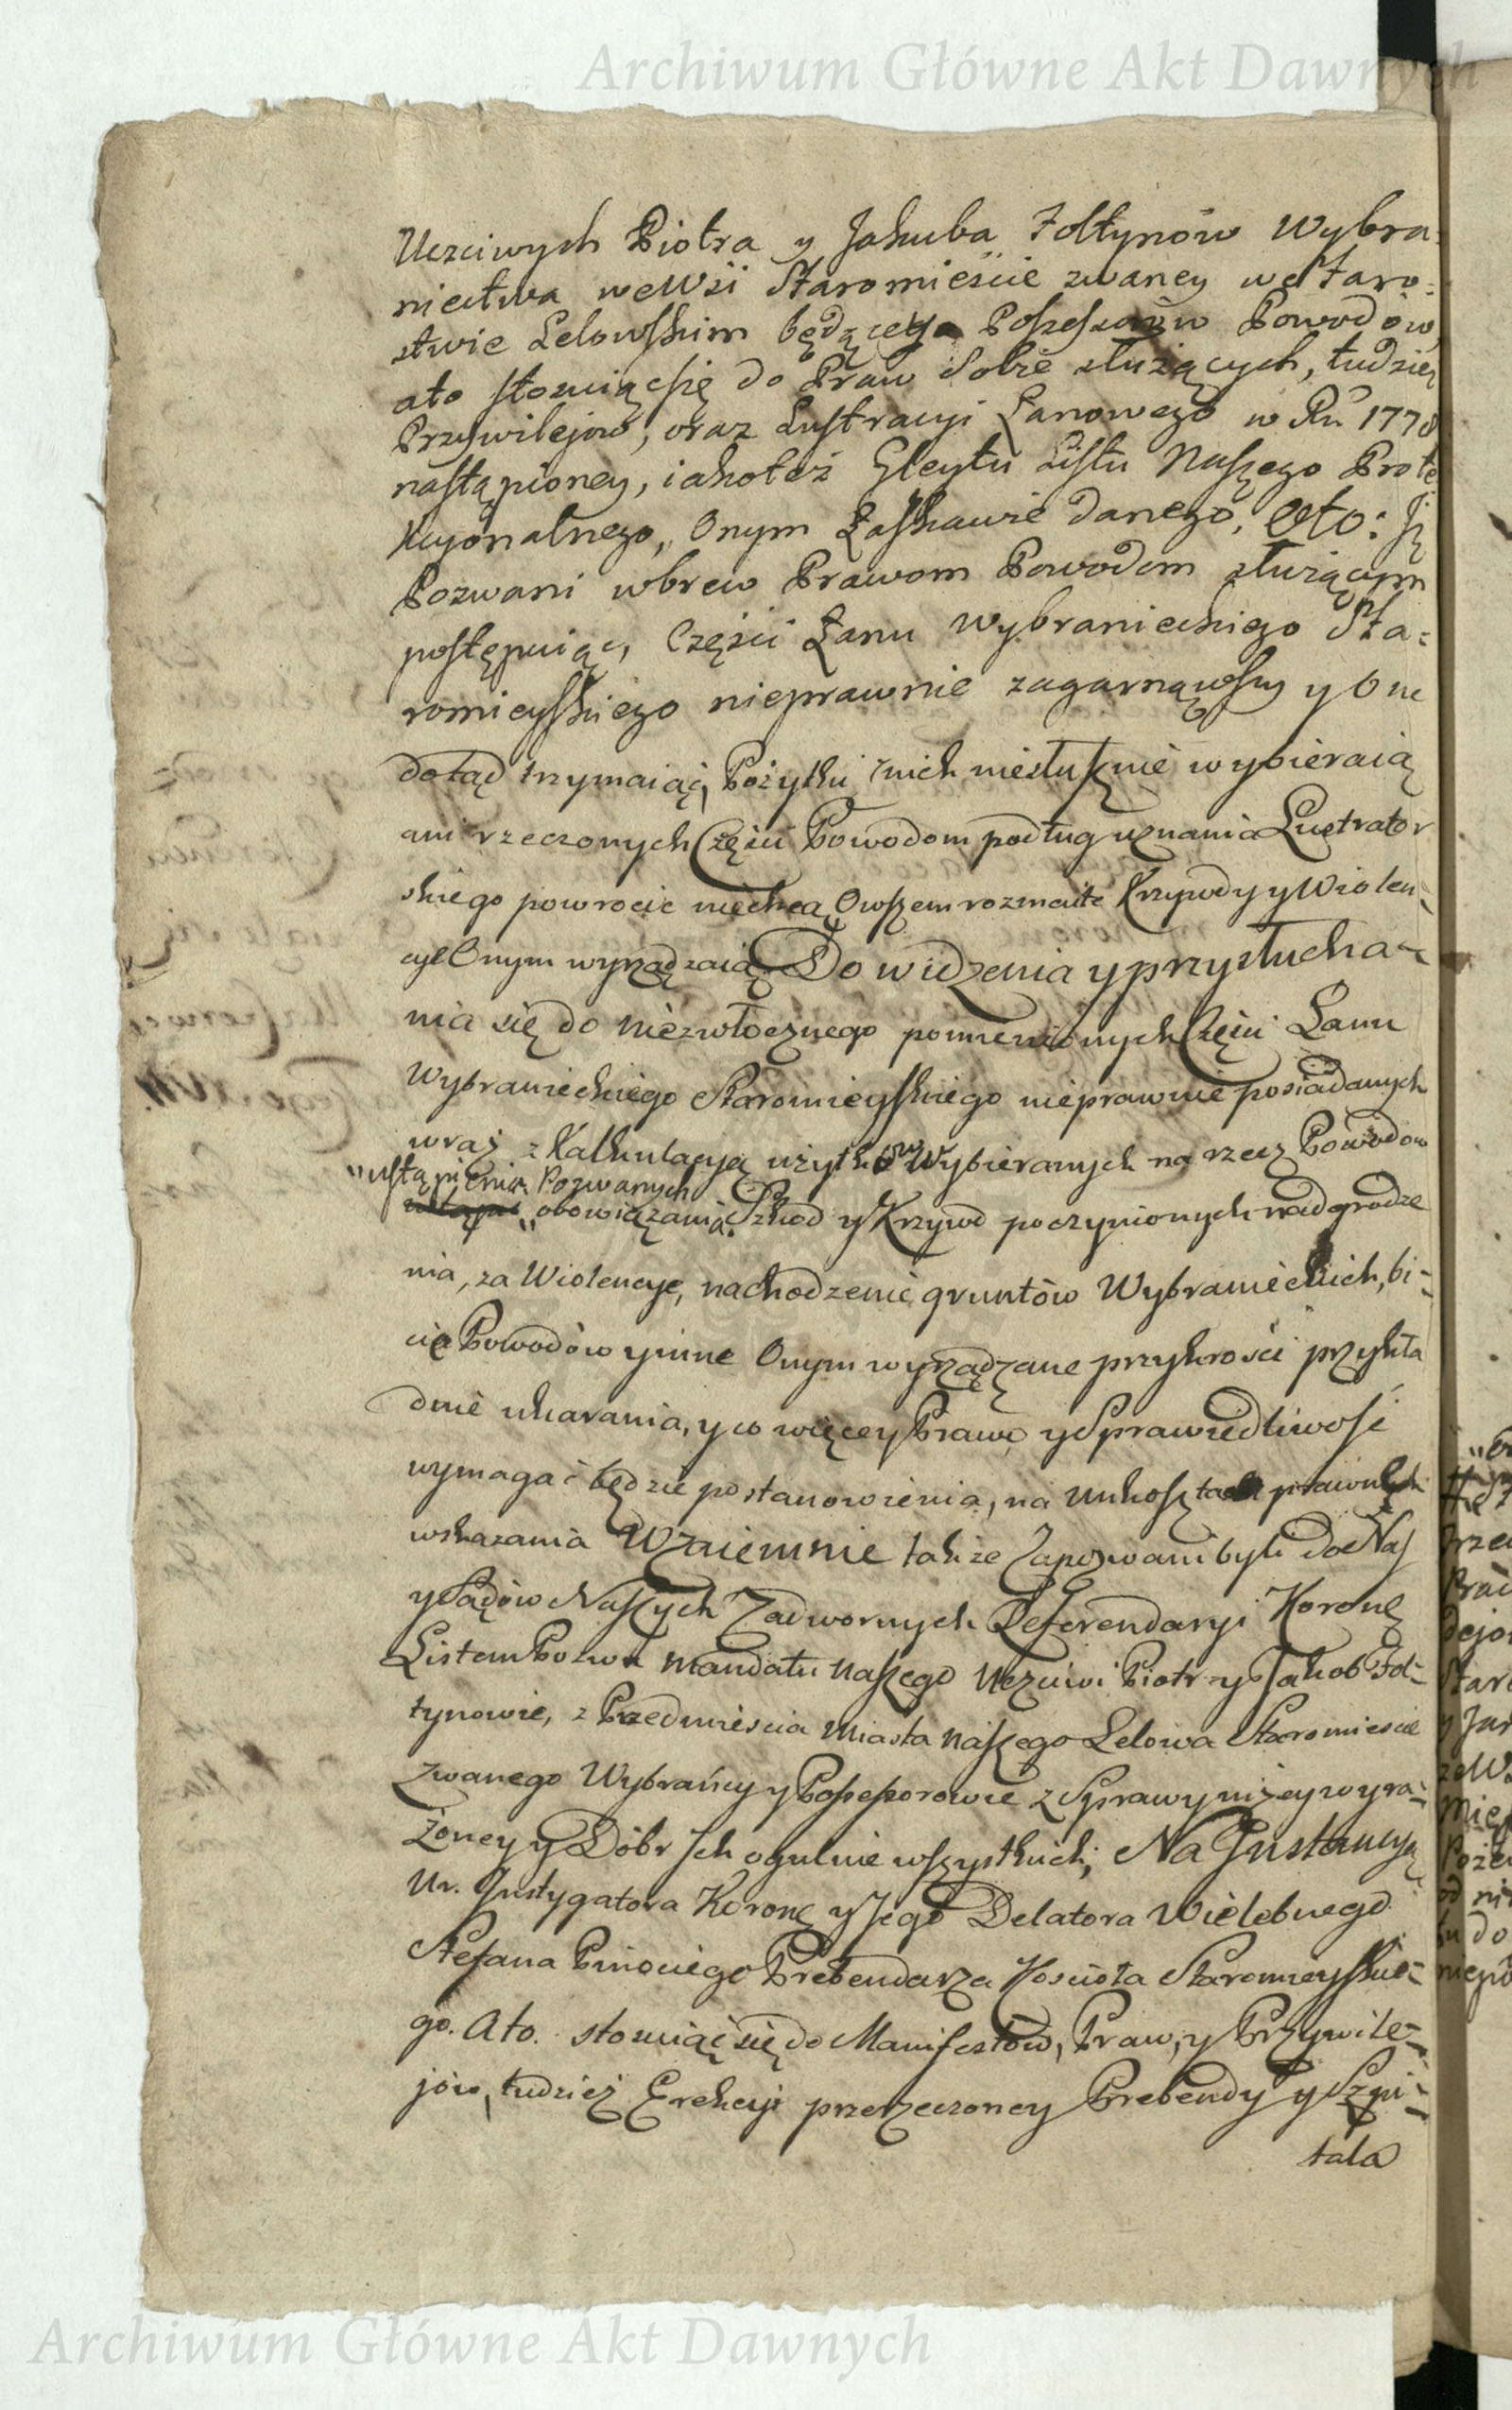 Archiwum Główne Akt Dawnych
Uczciwych Piotra y Jakuba Fołtynów Wybra-
niectwa weWsi Staromieście zwaney w Staro-
stwie Lelowskim będącego Possessorów Powodów
ato stosuiąc się do Praw Sobie służących, tudzież
Przywilejow, oraz Lustracyi Łanowego w Rku 1778
nastąpioney, iakoteż Gleytu Listu Naszego Prote
kcyonalnego, Onym Łaskawie danego, Oto: Jż
Pozwani wbrew Prawom Powodom służącym
postępuiąc, Części Łanu Wybranieckiego Sta-
romieyskiego nieprawnie zagarnąwszy y One
dotąd trzymaiąc, Pożytki z nich niesłusznie wybieraią
ani rzeczonych Części Powodom podług uznania Lustrator
skiego powrocic niechcą Owszem rozmaite Krzywdy y Wiolen-
cye Onym wyrządzaią Do widzenia y przysłucha-
nia się do niezwłocznego pomienionych Części Łanu
Wybranieckiego Staromieyskiego nieprawnie posiadanych
wraz z Kalkulacyą użytków Wybieranych na rzecz Powodow
"ustąpienia Pozwanych
"obowiązania. Szkod y Krzywd poczynionych nadgrodze
nia, za Wiolencye, nachodzenie gruntów Wybranieckich, bi-
cie Powodów y inne Onym wyrządzane przykrości przykła
dnie ukarania, y co więcey Prawo y Sprawiedliwość
wymagać będzie postanowienia, na Unkosztach prawnych
wskazania Wzaiemnie także Zapozwani byli do Nas
y Sądów Naszych Zadwornych Referendaryi Koronę
Listem Pozwu Mandatu Naszego Uczciwi Piotr y Jakob Foł-
tynowie, z Przedmieścia Miasta Naszego Lelowa Staromieście
Zwanego Wybrańcy y Possessorowie z Sprawy niżey wyra-
żoney y Dóbr Jch ogulnie wszystkich; Na Jnstancyą
Ur. Jnstygatora Koronę y Jego Delatora Wielebnego
Stefana Pinociego Prebendarza Koscioła Staromieyskie-
go. Ato. stosuiąc się do Manifestów, Praw, y Przywile-
jów, tudzież Erekcyi przerzeczoney Prebendy y Szpi-
tala
Archiwum Główne Akt Dawnych